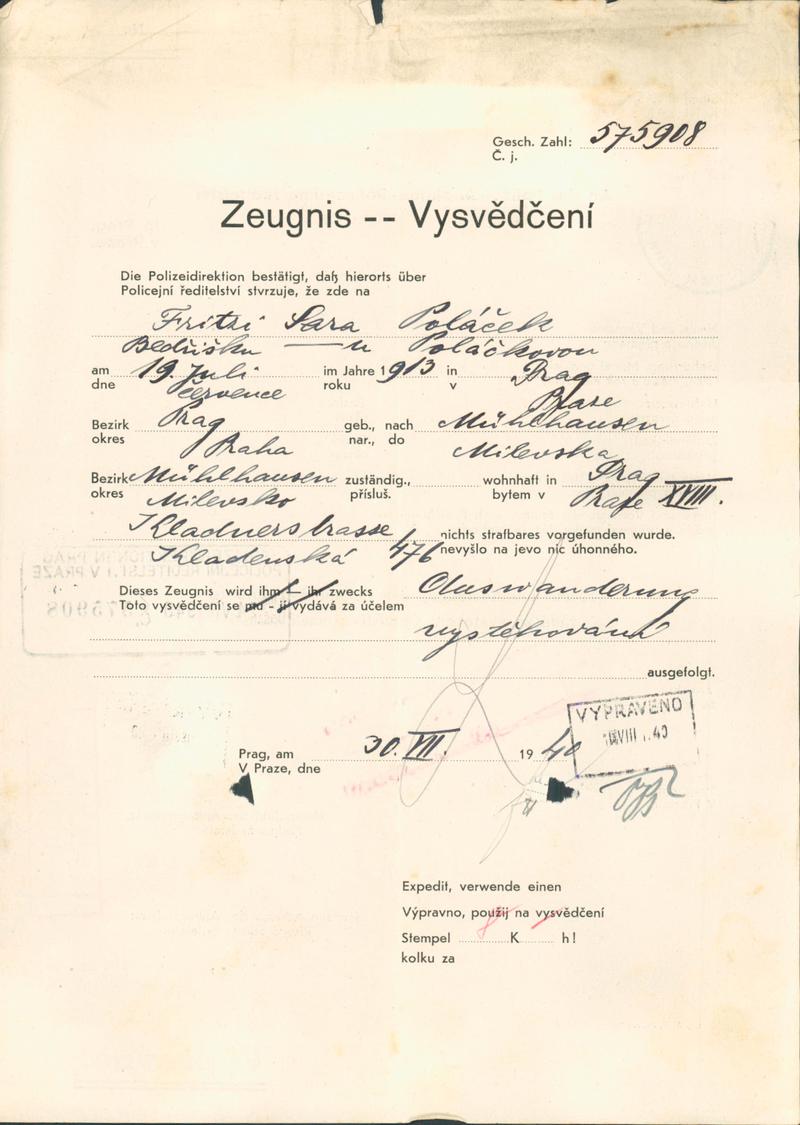 Gesch. Zahl: 575908
Č. j.
Zeugnis -- Vysvědčení
Die Polizeidirektion bestätigt, daß hierorts über
Policejní ředitelství stvrzuje, že zde na
Fritzi Sara Poláček
Bedřišku — u Poláčkovou
am 19. Juli im Jahre 1913 in Prag
dne července roku v Praze
Bezirk Prag geb., nach Mühlhausen
okres Praha nar., do Milevska
Bezirk Mühlhausen zuständig., wohnhaft in Prag
okres Milevsko přísluš. bytem v Praze XVIII.
Kladnerstrasse nichts strafbares vorgefunden wurde.
Kladenská 476 nevyšlo na jevo nic úhonného.
Dieses Zeugnis wird ihm - ihr zwecks Auswanderung
Toto vysvědčení se mu - jí vydává za účelem
vystěhování
ausgefolgt.
VYPRAVENO
VIII 40
Prag, am 30. VII. 1940
V Praze, dne
Expedit, verwende einen
Výpravno, použij na vysvědčení
Stempel K h!
kolku za